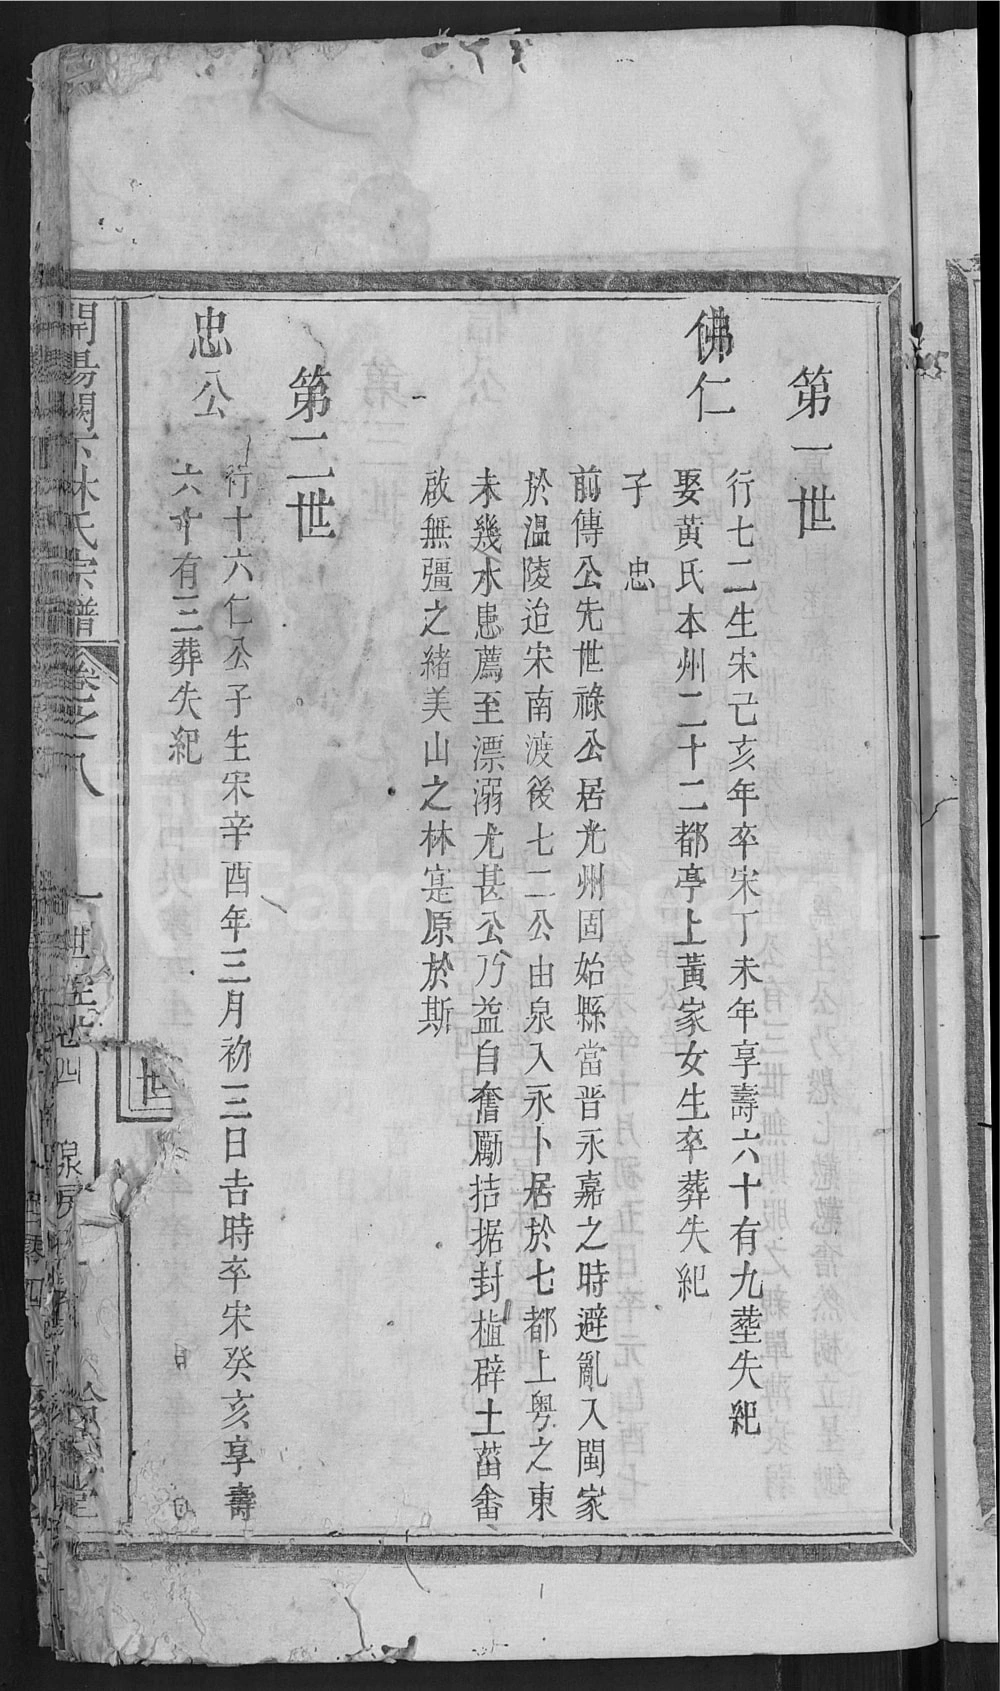 第一世
佛仁
行七二生宋己亥年卒宋丁未年享壽六十有九塟失紀
娶黃氏本州二十二都亭上黃家女生卒葬失紀
子 忠
前傳公先世祿公居光州固始縣當晋永嘉之時避亂入閩家
於溫陵迨宋南渡後七二公由泉入永卜居於七都上粤之東
未幾水患薦至漂溺尤甚公乃益自奮勵拮据封植辟土菑畬
啟無疆之緒美山之林寔原於斯
第二世
忠公
行十六仁公子生宋辛酉年三月初三日吉時卒宋癸亥享壽
六十有三葬失紀
林氏宗譜 卷之八